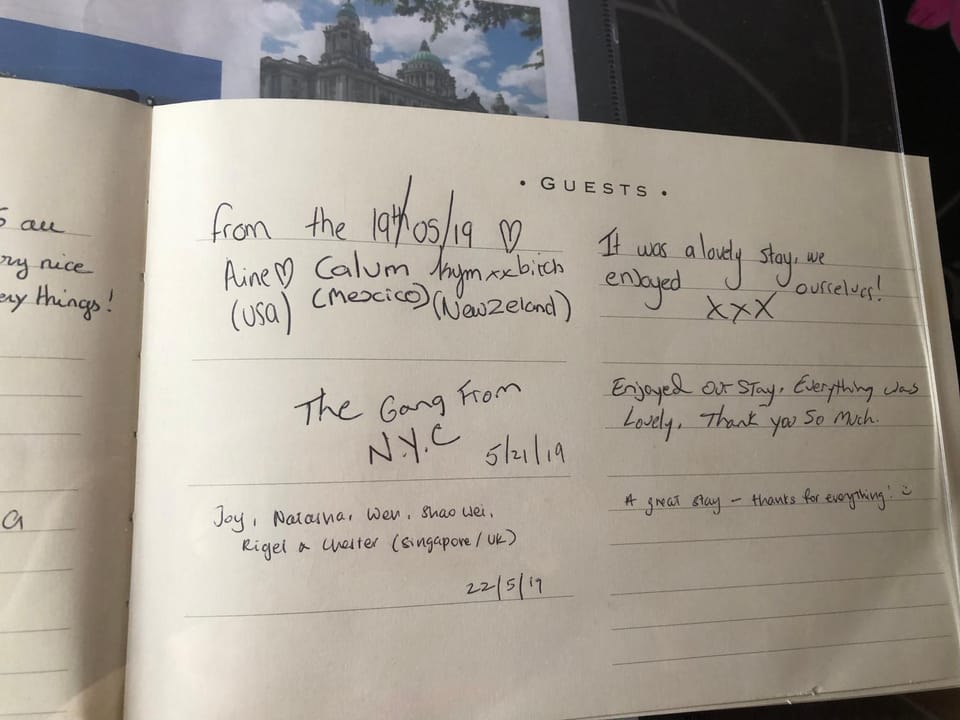 au
ry nice
ery things!
a
• GUESTS •
from the 19th/05/19 ♡
Aine♡ Calum kym xx bitch
(USA) (Mexico) (NewZeland)
It was a lovely stay, we
enjoyed ourselves!
XXX
The Gang From
N.Y.C 5/21/19
Enjoyed Our Stay. Everything was
Lovely. Thank you So Much.
Joy, Natasha, Wen, Shao Wei,
Rigel & Chester (Singapore/UK)
22/5/19
A great stay – thanks for everything! :)